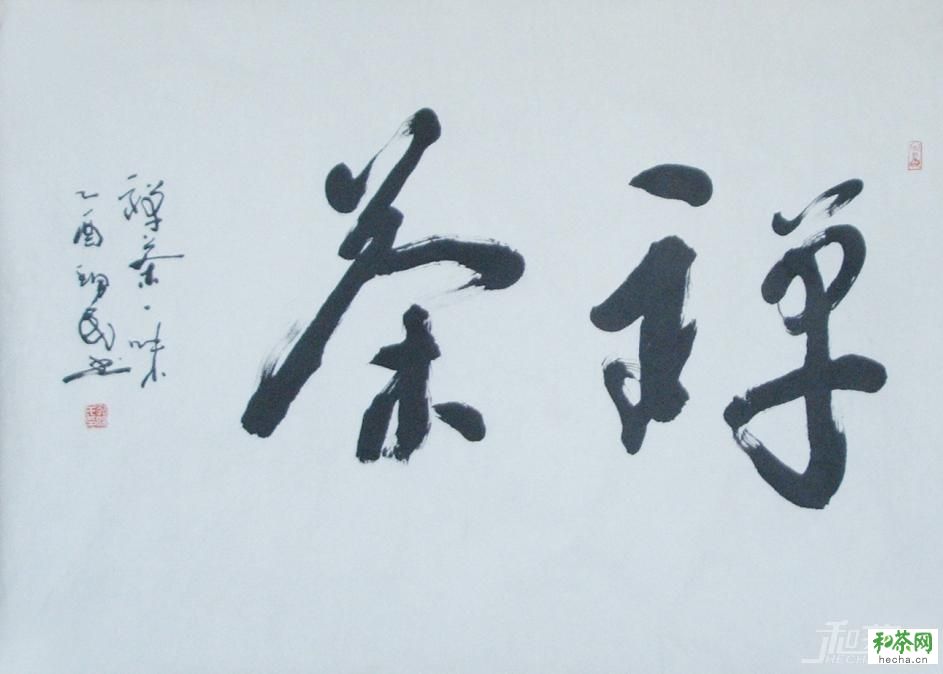 禅茶
禅茶一味
乙酉 民书
和茶网
hecha.cn